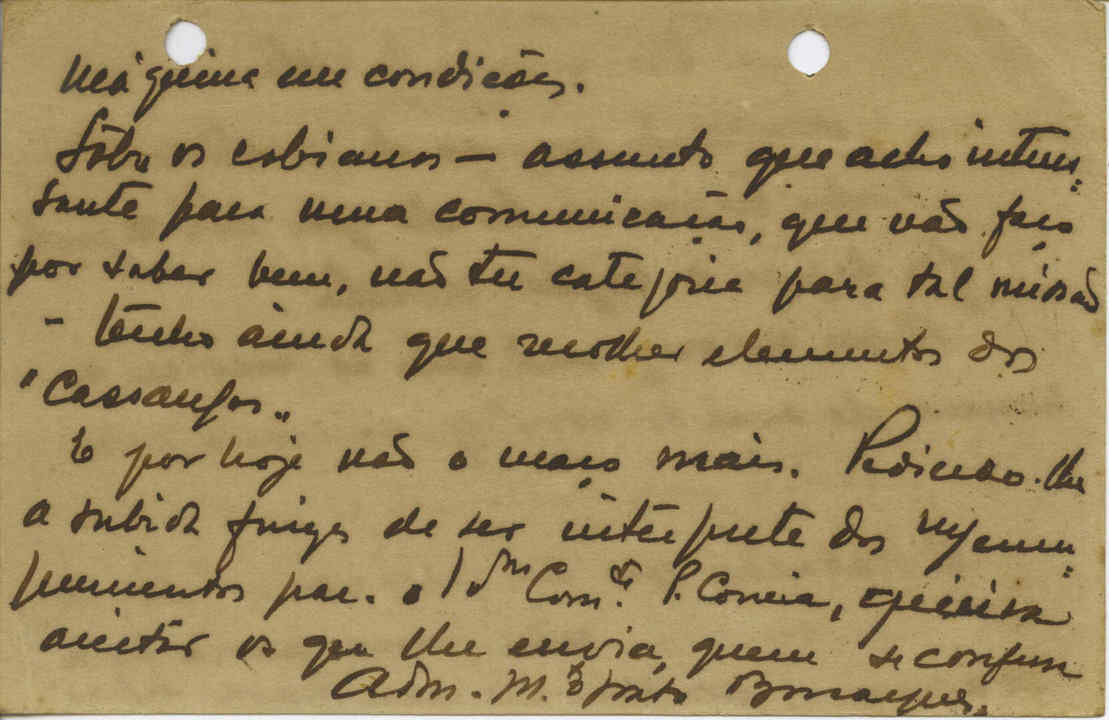 máquina em condições.
Sôbre os cobianos — assunto que acho interes=
sante para uma comunicação, que não faço
por saber bem, não ter categoria para tal missão
- tenho ainda que recolher elementos dos
"Cassangas"
E por hoje não o maço mais. Pedindo-lhe
a subida fineza de ser intérprete dos meus
cumprimentos para o Com.te P. Correia, queira
aceitar os que lhe envia, quem se confessa
Adm. M.to grato